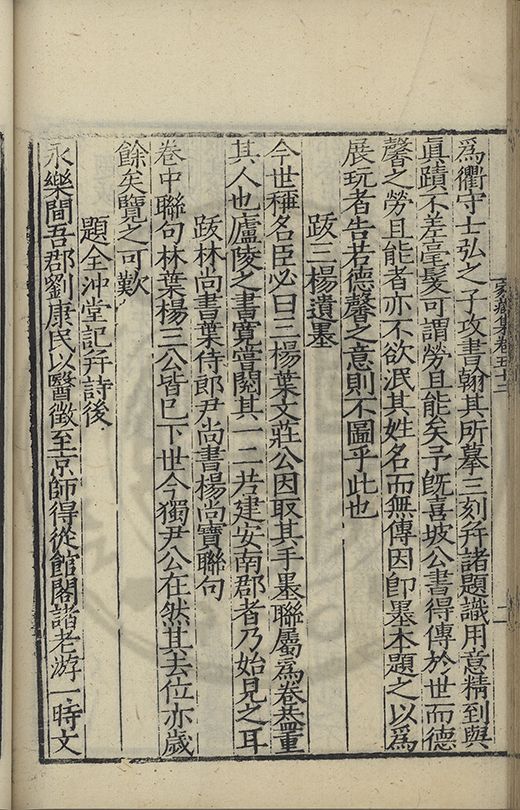 家藏集卷五十二
二
爲衢守士弘之子攻書翰其所摹三刻幷諸題識用意精到與
眞蹟不差毫髮可謂勞且能矣予旣喜坡公書得傳於世而德
馨之勞且能者亦不欲泯其姓名而無傳因卽墨本題之以爲
展玩者告若德馨之意則不圖乎此也
跋三楊遺墨
今世稱名臣必曰三楊葉文莊公因取其手墨聯屬爲卷葢重
其人也廬陵之書寬嘗閱其一二共建安南郡者乃始見之耳
跋林尚書葉侍郎尹尚書楊尚寶聯句
卷中聯句林葉楊三公皆已下世今獨尹公在然其去位亦歲
餘矣覽之可歎
題全沖堂記幷詩後
永樂間吾郡劉康民以醫徵至京師得從館閣諸老游一時文